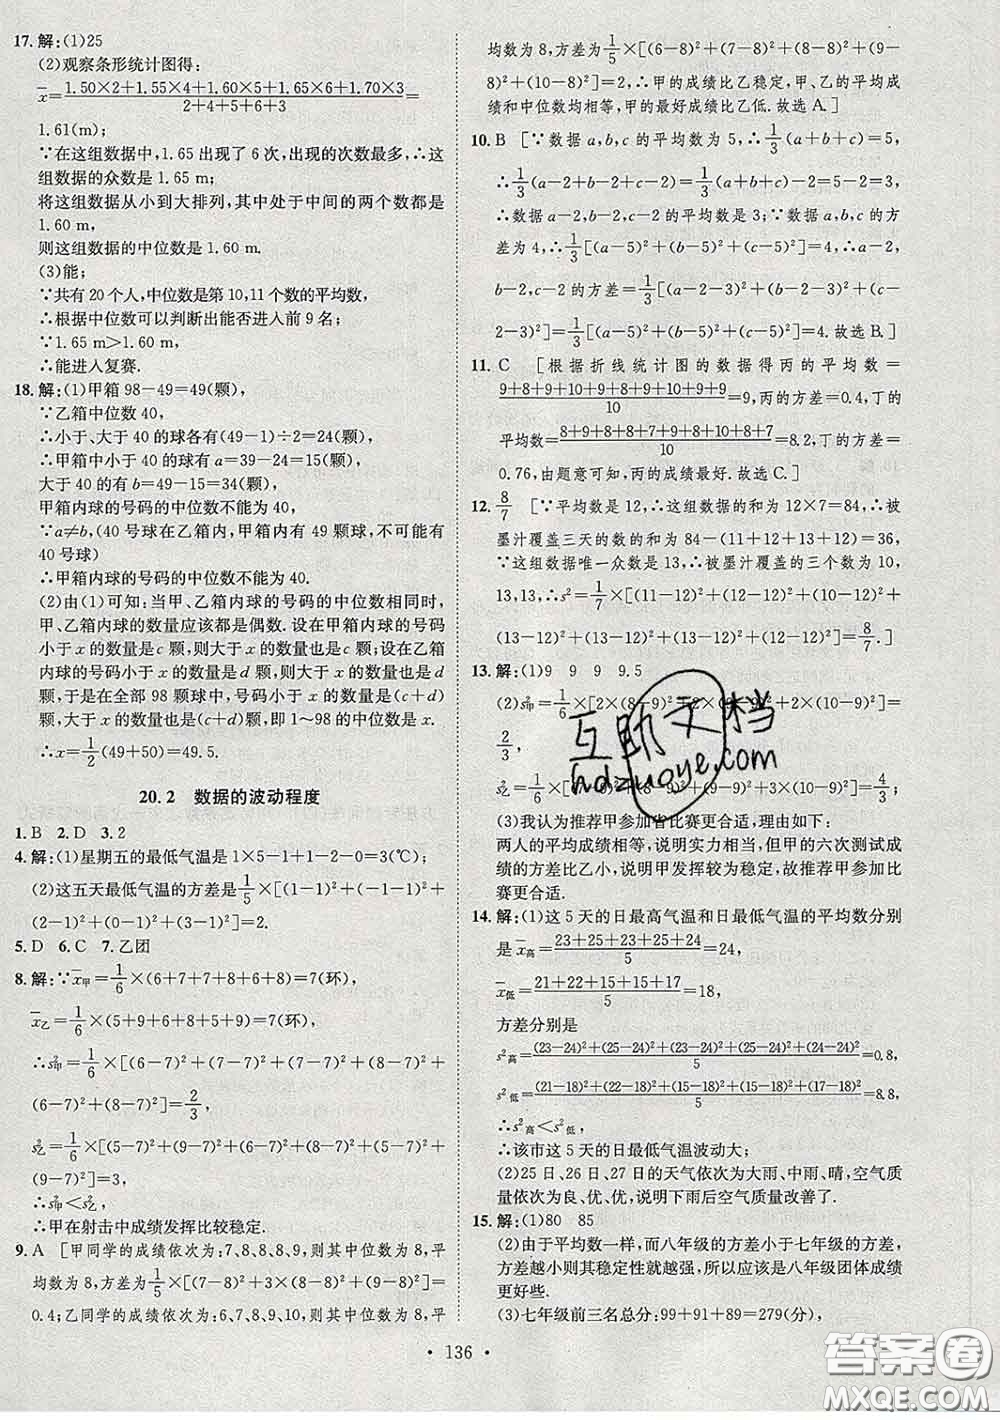 17.解:(1)25
(2)观察条形统计图得:
x̄=(1.50×2+1.55×4+1.60×5+1.65×6+1.70×3)/(2+4+5+6+3)=
1.61(m);
∵在这组数据中,1.65出现了6次,出现的次数最多,∴这
组数据的众数是1.65 m;
将这组数据从小到大排列,其中处于中间的两个数都是
1.60 m,
则这组数据的中位数是1.60 m.
(3)能;
∵共有20个人,中位数是第10,11个数的平均数,
∴根据中位数可以判断出能否进入前9名;
∵1.65 m>1.60 m,
∴能进入复赛.
18.解:(1)甲箱98-49=49(颗),
∵乙箱中位数40,
∴小于、大于40的球各有(49-1)÷2=24(颗),
∴甲箱中小于40的球有a=39-24=15(颗),
大于40的有b=49-15=34(颗),
甲箱内球的号码的中位数不能为40.
∵a≠b,(40号球在乙箱内,甲箱内有49颗球,不可能有
40号球)
∴甲箱内球的号码的中位数不能为40.
(2)由(1)可知:当甲、乙箱内球的号码的中位数相同时,
甲、乙箱内球的数量应该都是偶数.设在甲箱内球的号码
小于x的数量是c颗,则大于x的数量也是c颗;设在乙箱
内球的号码小于x的数量是d颗,则大于x的数量也是d
颗;于是在全部98颗球中,号码小于x的数量是(c+d)
颗,大于x的数量也是(c+d)颗,即1~98的中位数是x.
∴x=1/2(49+50)=49.5.
20.2 数据的波动程度
1.B 2.D 3.2
4.解:(1)星期五的最低气温是1×5-1+1-2-0=3(℃);
(2)这五天最低气温的方差是1/5×[(1-1)²+(-1-1)²+
(2-1)²+(0-1)²+(3-1)²]=2.
5.D 6.C 7.乙团
8.解:∵x̄甲=1/6×(6+7+7+8+6+8)=7(环),
x̄乙=1/6×(5+9+6+8+5+9)=7(环),
∴s²甲=1/6×[(6-7)²+(7-7)²+(7-7)²+(8-7)²
+(6-7)²+(8-7)²]=2/3,
s²乙=1/6×[(5-7)²+(9-7)²+(6-7)²+(8-7)²+(5-7)²+
(9-7)²]=3,
∴s²甲<s²乙,
∴甲在射击中成绩发挥比较稳定.
9.A [甲同学的成绩依次为:7,8,8,8,9,则其中位数为8,平
均数为8,方差为1/5×[(7-8)²+3×(8-8)²+(9-8)²]=
0.4;乙同学的成绩依次为:6,7,8,9,10,则其中位数为8,平
均数为8,方差为1/5×[(6-8)²+(7-8)²+(8-8)²+(9-
8)²+(10-8)²]=2,∴甲的成绩比乙稳定,甲、乙的平均成
绩和中位数均相等,甲的最好成绩比乙低.故选A.]
10.B [∵数据a,b,c的平均数为5,∴1/3(a+b+c)=5,
∴1/3(a-2+b-2+c-2)=1/3(a+b+c)-2=5-2=3,
∴数据a-2,b-2,c-2的平均数是3;∵数据a,b,c的方
差为4,∴1/3[(a-5)²+(b-5)²+(c-5)²]=4,∴a-2,
b-2,c-2的方差=1/3[(a-2-3)²+(b-2-3)²+(c
-2-3)²]=1/3[(a-5)²+(b-5)²+(c-5)²]=4.故选B.]
11.C [根据折线统计图的数据得丙的平均数=
(9+8+9+10+9+8+9+10+9+9)/10=9,丙的方差=0.4,丁的
平均数=(8+9+8+7+8+9+8+10+8+7)/10=8.2,丁的方差=
0.76,由题意可知,丙的成绩最好.故选C.]
12.8/7 [∵平均数是12,∴这组数据的和=12×7=84,∴被
墨汁覆盖三天的数的和为84-(11+12+13+12)=36,
∵这组数据唯一众数是13,∴被墨汁覆盖的三个数为10,
13,13,∴s²=1/7×[(11-12)²+(12-12)²+(10-12)²+
(13-12)²+(13-12)²+(13-12)²+(12-12)²]=8/7.]
13.解:(1)9 9 9 9.5
(2)s²甲=1/6×[2×(8-9)²+2×(9-9)²+2×(10-9)²]=
2/3,
(3)我认为推荐甲参加省比赛更合适,理由如下:
两人的平均成绩相等,说明实力相当,但甲的六次测试成
绩的方差比乙小,说明甲发挥较为稳定,故推荐甲参加比
赛更合适.
14.解:(1)这5天的日最高气温和日最低气温的平均数分别
是x̄高=(23+25+23+25+24)/5=24,
x̄低=(21+22+15+15+17)/5=18,
方差分别是
s²高=((23-24)²+(25-24)²+(23-24)²+(25-24)²+(24-24)²)/5=0.8,
s²低=((21-18)²+(22-18)²+(15-18)²+(15-18)²+(17-18)²)/5=8.8,
∴s²高<s²低,
∴该市这5天的日最低气温波动大;
(2)25日、26日、27日的天气依次为大雨、中雨、晴,空气质
量依次为良、优、优,说明下雨后空气质量改善了.
15.解:(1)80 85
(2)由于平均数一样,而八年级的方差小于七年级的方差,
方差越小则其稳定性就越强,所以应该是八年级团体成绩
更好些.
(3)七年级前三名总分:99+91+89=279(分),
• 136 •
互助文档
hdzuoye.com
答案圈
MXQE.COM